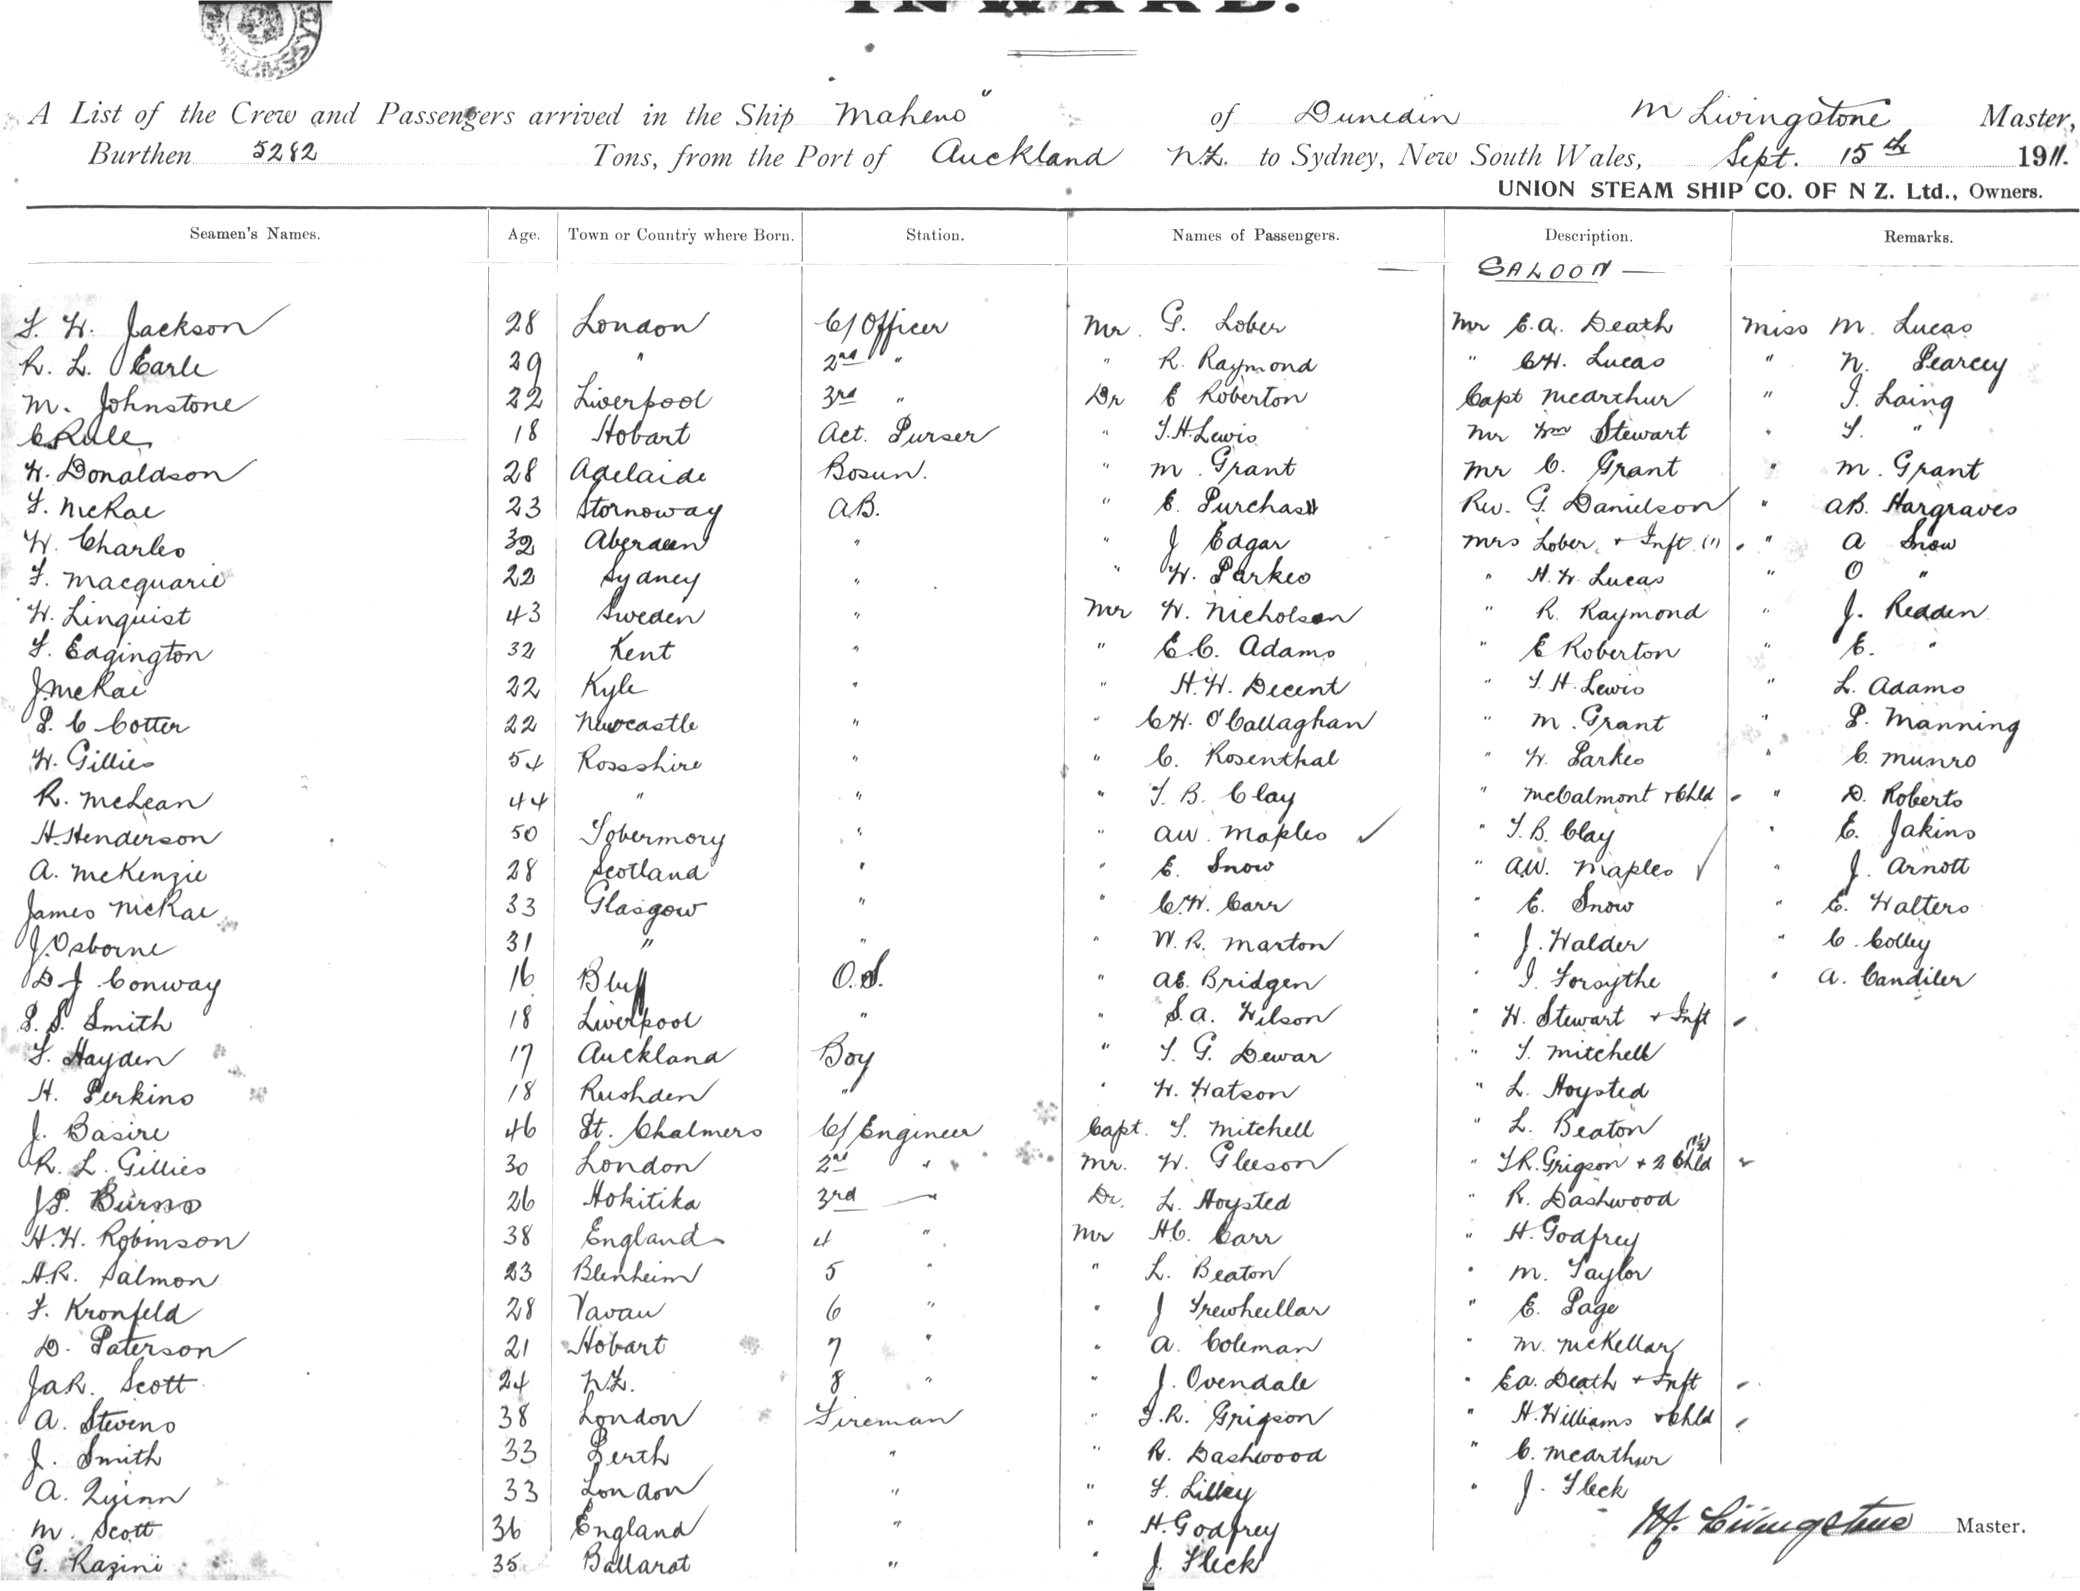 INWARD.
A List of the Crew and Passengers arrived in the Ship "Maheno" of Dunedin M Livingstone Master,
Burthen 5282 Tons, from the Port of Auckland N.Z. to Sydney, New South Wales, Sept. 15th 1911.
UNION STEAM SHIP CO. OF N Z. Ltd., Owners.
Seamen's Names. Age. Town or Country where Born. Station. Names of Passengers. Description. Remarks.
— SALOON —
F. W. Jackson 28 London C/Officer Mr. G. Lober Mr E.A. Death Miss M. Lucas
R. L. Earle 29 " 2nd " " R. Raymond " C.H. Lucas " N. Pearcey
M. Johnstone 22 Liverpool 3rd " Dr E Roberton Capt McArthur " I. Laing
C Rule 18 Hobart Act. Purser " T.H. Lewis Mr Wm Stewart " F. "
W. Donaldson 28 Adelaide Bosun. " M. Grant Mr C. Grant " M. Grant
F. McRae 23 Stornoway A.B. " E. Purchas Rev. G. Danielson " AB. Hargraves
W. Charles 32 Aberdeen " " J Edgar Mrs Lober + Inft (1) " A Snow
F. Macquarie 22 Sydney " " W. Parkes " H. W. Lucas " O "
W. Linquist 43 Sweden " Mr W. Nicholson " R. Raymond " J. Redden
F. Edgington 32 Kent " " E.C. Adams " E Roberton " E. "
J. McRae 22 Kyle " " H.W. Decent " T. H. Lewis " L. Adams
P. C Cotter 22 Newcastle " " C.H. O'Callaghan " M. Grant " P. Manning
W. Gillies 54 Rossshire " " C. Rosenthal " W. Parkes " C. Munro
R. McLean 44 " " " T. B. Clay " McCalmont + Chld " D. Roberts
H. Henderson 50 Tobermory " " AW. Maples " T. B. Clay " E. Jakins
A. McKenzie 28 Scotland " " E. Snow " A.W. Maples " J. Arnott
James McRae 33 Glasgow " " C.W. Carr " E. Snow " E. Walters
J. Osborne 31 " " " W. R. Marton " J. Walder " C. Colley
D J Conway 16 Bluff O.S. " AE. Bridgen " I. Forsythe " A. Candiler
P. S. Smith 18 Liverpool " " S. A. Wilson " W. Stewart + Inft
F. Hayden 17 Auckland Boy " T. G. Dewar " T. Mitchell
H. Perkins 18 Rushden " " W. Watson " L. Hoysted
J. Basire 46 Pt. Chalmers C/Engineer Capt. T. Mitchell " L. Beaton
R. L. Gillies 30 London 2nd " Mr. W. Gleeson " T.R. Grigson + 2 Chld
J.P. Burns 26 Hokitika 3rd " Dr. L. Hoysted " R. Dashwood
H.W. Robinson 38 England 4 " Mr H.C. Carr " H. Godfrey
H.R. Salmon 23 Blenheim 5 " " L. Beaton " M. Taylor
F. Kronfeld 28 Vavau 6 " " J Trewheellar " E. Page
D. Paterson 21 Hobart 7 " " A. Coleman " M. McKellar
Jas. R. Scott 24 N.Z. 8 " " J. Ovendale " E.A. Death + Inft
A. Stevens 38 London Fireman " T.R. Grigson " H. Williams + Chld
J. Smith 33 Perth " " R. Dashwood " C. McArthur
A. Quinn 33 London " " F. Lilley " J. Fleck
M. Scott 36 England " " H. Godfrey M. Livingstone Master.
G. Razini 35 Ballarat " " J. Fleck